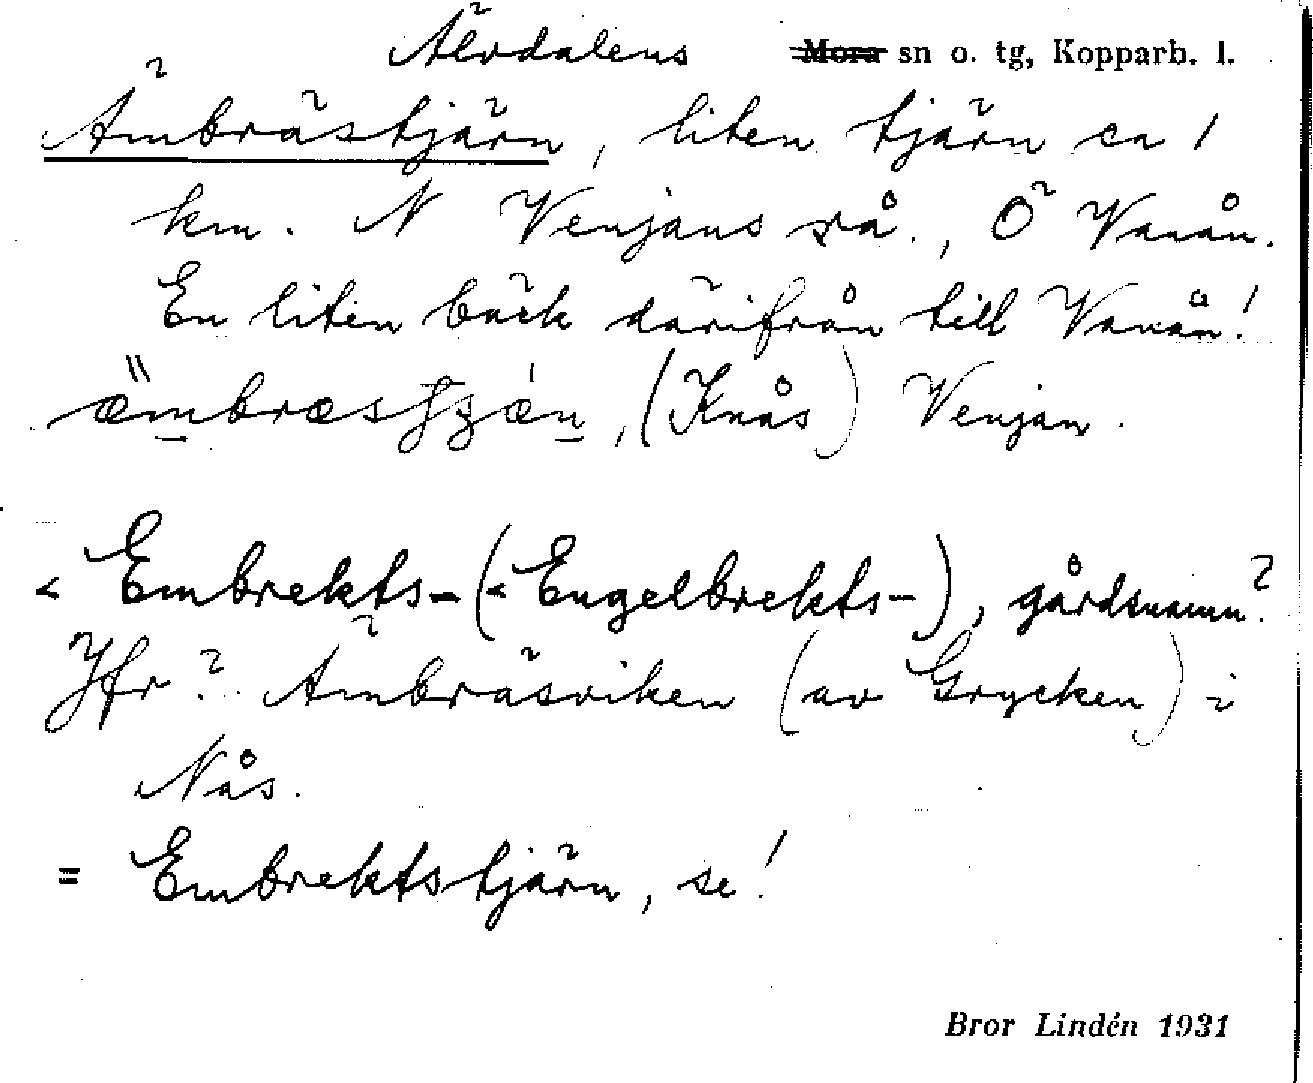 Älvdalens ~~Mora~~ sn o. tg, Kopparb. l.
Ämbrästjärn, liten tjärn ca 1
km. N Venjans rå., Ö Vanån.
En liten bäck därifrån till Vanån!
(Knås) Venjan.
< Embrekts- (< Engelbrekts-), gårdsnamn?
Jfr? Ämbräsviken (av Grycken) i
Nås.
= Embrektstjärn, se!
Bror Lindén 1931